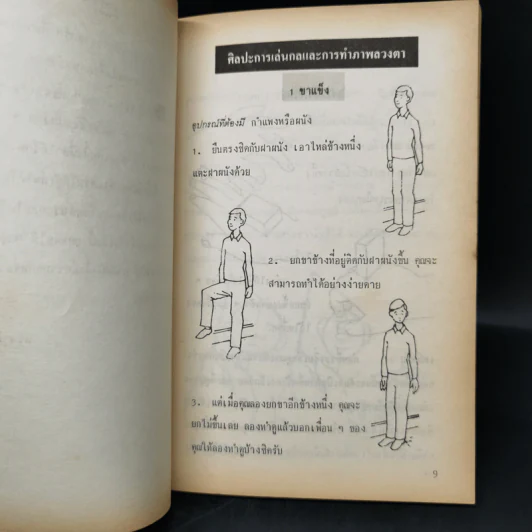 ศิลปะการเล่นกลและการทำภาพลวงตา
1 ขาแข็ง
อุปกรณ์ที่ต้องมี กำแพงหรือผนัง
1. ยืนตรงชิดกับฝาผนัง เอาไหล่ข้างหนึ่ง
แตะฝาผนังด้วย
2. ยกขาข้างที่อยู่ติดกับฝาผนังขึ้น คุณจะ
สามารถทำได้อย่างง่ายดาย
3. แต่เมื่อคุณลองยกขาอีกข้างหนึ่ง คุณจะ
ยกไม่ขึ้นเลย ลองทำดูแล้วบอกเพื่อน ๆ ของ
คุณให้ลองทำดูบ้างซิครับ
9